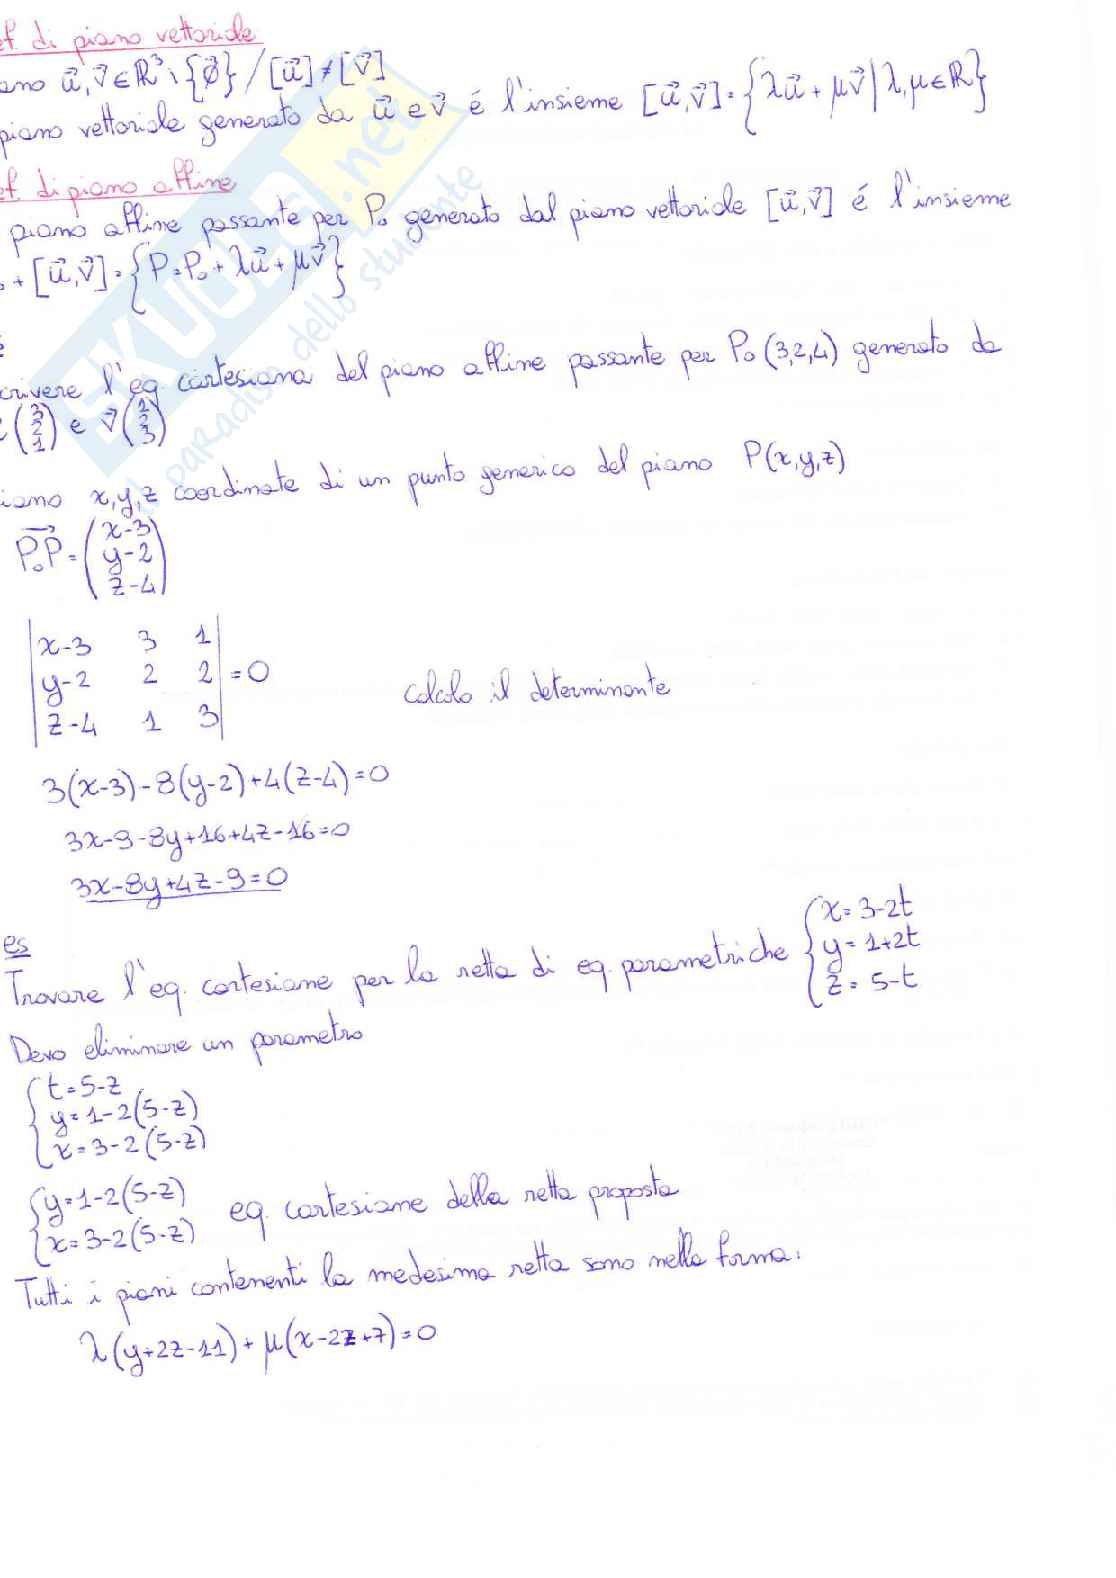 ef. di piano vettoriale
ano u⃗,v⃗ ∈ ℝ³ \ {∅⃗} / [u⃗] ≠ [v⃗]
piano vettoriale generato da u⃗ e v⃗ é l'insieme [u⃗,v⃗] = {λu⃗ + μv⃗ | λ,μ ∈ ℝ}
ef. di piano affine
piano affine passante per P₀ generato dal piano vettoriale [u⃗,v⃗] é l'insieme
₀ + [u⃗,v⃗] = {P=P₀ + λu⃗ + μv⃗}
crivere l'eq cartesiana del piano affine passante per P₀ (3,2,4) generato da
(3 2 1) e v⃗ (1 2 3)
iamo x,y,z coordinate di un punto generico del piano P(x,y,z)
P₀P⃗ = (x-3
y-2
z-4)
|x-3 3 1|
|y-2 2 2| = 0
|z-4 1 3|
calcolo il determinante
3(x-3)-8(y-2)+4(z-4)=0
3x-9-8y+16+4z-16=0
3x-8y+4z-9=0
es
Trovare l'eq. cartesiane per la retta di eq. parametriche {x= 3-2t
y= 1+2t
z= 5-t
Devo eliminare un parametro
{t=5-z
y=1-2(5-z)
x=3-2(5-z)
{y=1-2(5-z)
x=3-2(5-z)
eq cartesiane della retta proposta
Tutti i piani contenenti la medesima retta sono nella forma:
λ(y+2z-11)+μ(x-2z+7)=0
SKUOLA.net
il paradiso dello studente